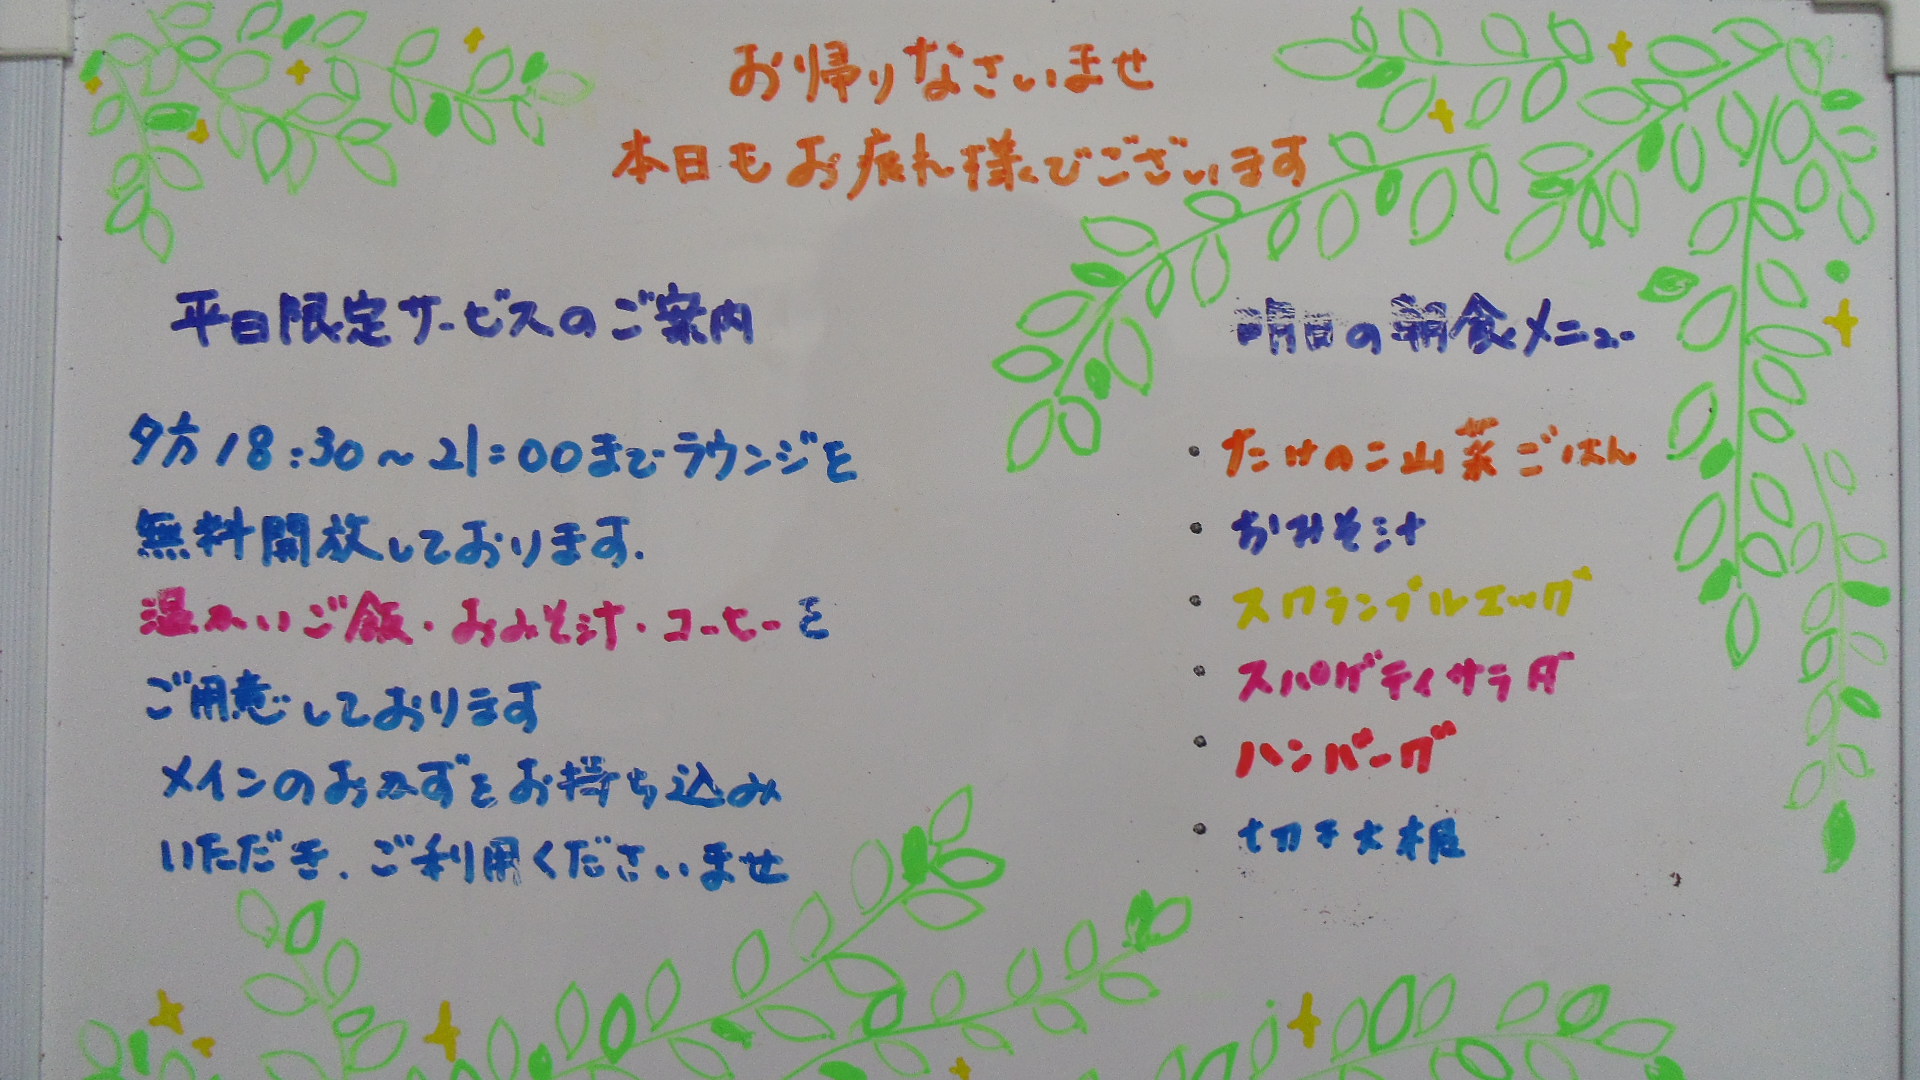 お帰りなさいませ
本日もお疲れ様でございます
平日限定サービスのご案内
夕方18:30～21:00までラウンジを
無料開放しております.
温かいご飯・おみそ汁・コーヒーを
ご用意しております
メインのおかずをお持ち込み
いただき、ご利用くださいませ
明日の朝食メニュー
・たけのこ山菜ごはん
・おみそ汁
・スクランブルエッグ
・スパゲティサラダ
・ハンバーグ
・切干大根